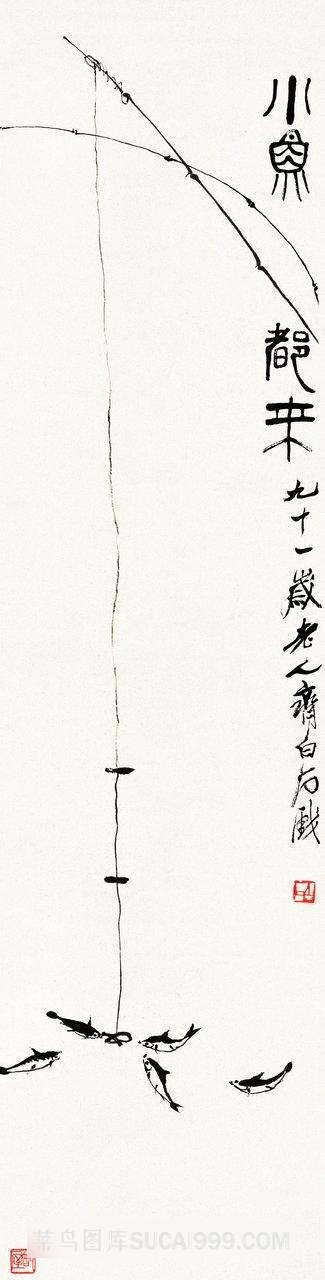 小魚都來
九十一歲老人齊白石戲
菜鸟图库SUCAI999.COM